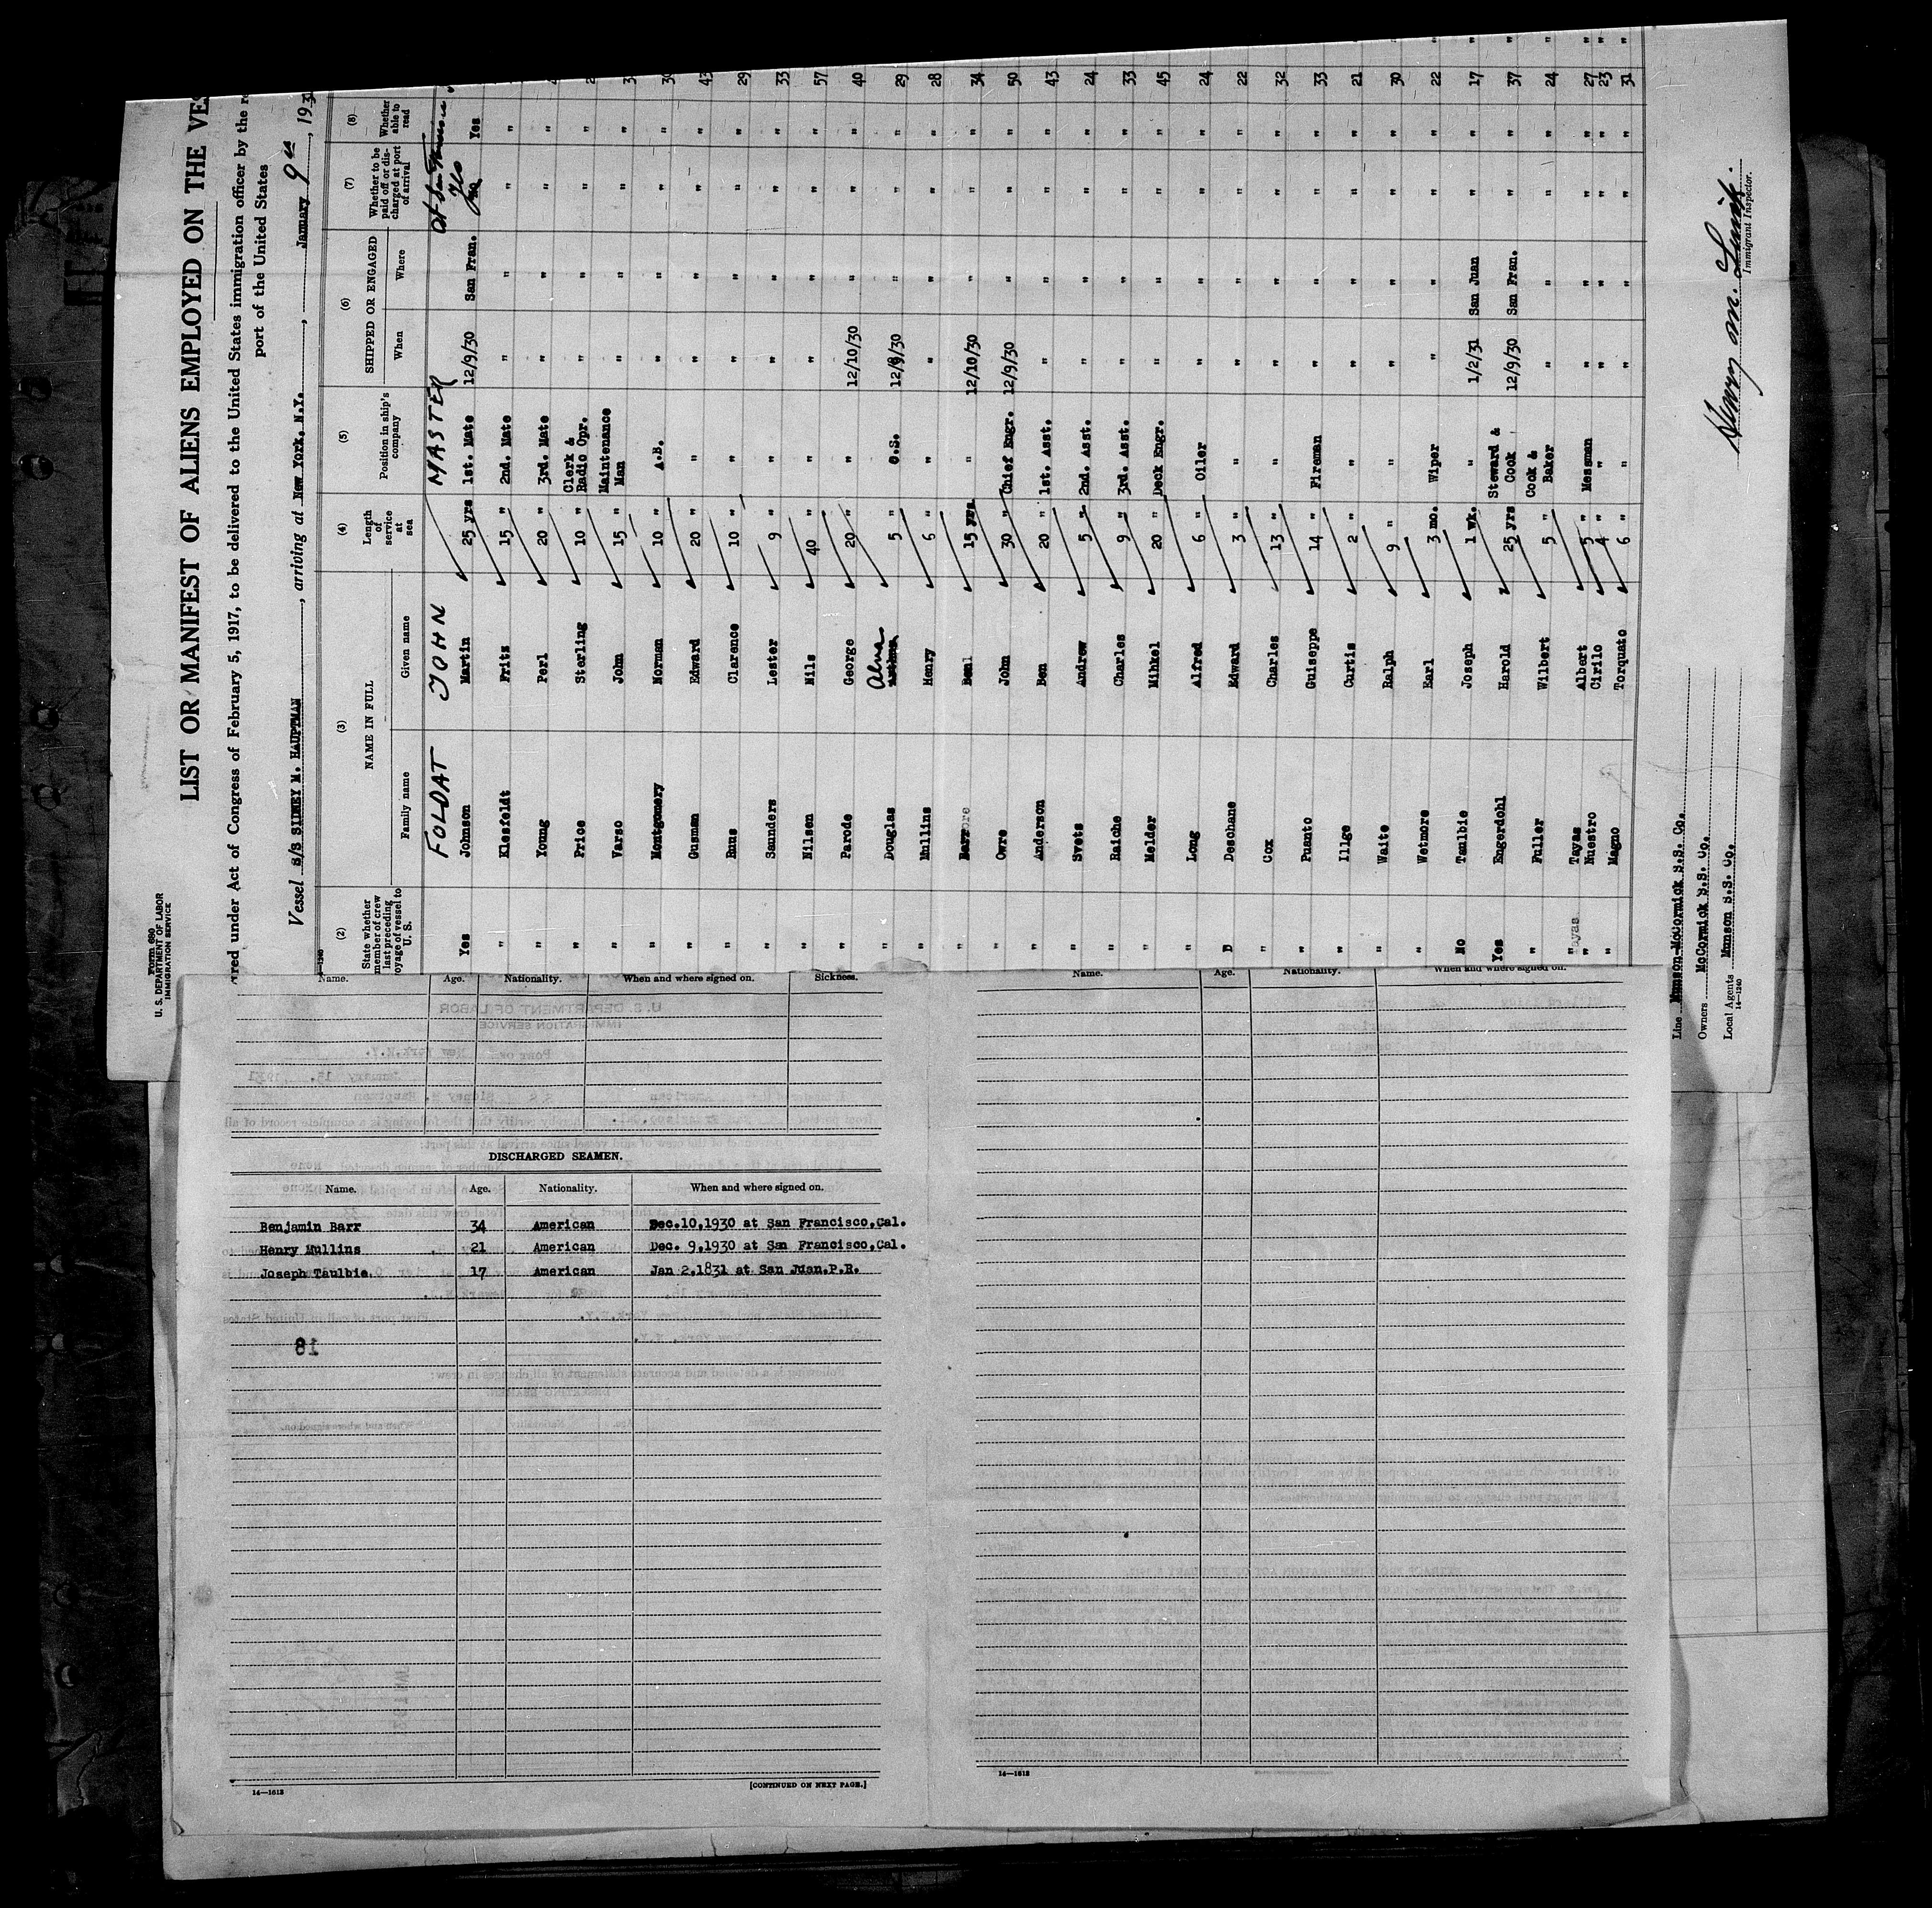 Form 680
U. S. DEPARTMENT OF LABOR
IMMIGRATION SERVICE
LIST OR MANIFEST OF ALIENS EMPLOYED ON THE
under Act of Congress of February 5, 1917, to be delivered to the United States immigration officer by the
port of the United States
Vessel S/S SIDNEY M. HAUPTMAN, arriving at New York, N.Y., January 9th, 1931
(2) (3) (4) (5) (6) (7) (8)
State whether member of crew last preceding voyage of vessel to U. S.
NAME IN FULL
Family name Given name
Length of service at sea
Position in ship's company
SHIPPED OR ENGAGED
When Where
Whether to be paid off or discharged at port of arrival
Whether able to read
FOLDAT JOHN MASTER
Yes Johnson Martin 25 yrs 1st. Mate 12/9/30 San Fran. Yes
" Klesfeldt Fritz 15 " 2nd. Mate " " " "
" Young Perl 20 " 3rd. Mate " " " "
" Price Sterling 10 " Clerk & Radio Opr. " " " "
" Varso John 15 " Maintenance Man " " " "
" Montgomery Norman 10 " A.B. " " " "
" Gusman Edward 20 " " " " " " 43
" Ruus Clarence 10 " " " " " " 29
" Saunders Lester 9 " " " " " " 33
" Nilsen Nils 40 " " " " " " 57
" Parode George 20 " " 12/10/30 " " " 40
" Douglas Alva 5 " O.S. 12/9/30 " " " 29
" Mullins Henry 6 " " " " " " 28
" Barr Benl 15 yrs " 12/10/30 " " " 34
" Owre John 30 " Chief Engr. 12/9/30 " " " 50
" Anderson Ben 20 " 1st. Asst. " " " " 43
" Svets Andrew 5 " 2nd. Asst. " " " " 24
" Raiche Charles 9 " 3rd. Asst. " " " " 33
" Melder Mihkel 20 " Deck Engr. " " " " 45
" Long Alfred 6 " Oiler " " " " 24
D Deschane Edward 3 " " " " " " 22
" Cox Charles 13 " " " " " " 32
" Puanto Guiseppe 14 " Fireman " " " " 33
" Illge Curtis 2 " " " " " " 21
" Waite Ralph 9 " " " " " " 30
" Wetmore Earl 3 mo. Wiper " " " " 22
No Taulbie Joseph 1 wk. " 1/2/31 San Juan " " 17
Yes Engerdohl Harold 25 yrs Steward & Cook 12/9/30 San Fran. " " 37
" Fuller Wilbert 5 " Cook & Baker " " " " 24
" Tayas Albert 5 " Messman " " " " 27
" Nuestro Cirilo 4 " " " " " " 23
" Magno Torquato 6 " " " " " " 31
Line Munson-McCormick S.S. Co.
Owners McCormick S.S. Co.
Local Agents Munson S.S. Co.
14—1240
Immigrant Inspector.
Name. Age. Nationality. When and where signed on. Sickness.
DISCHARGED SEAMEN.
Name. Age. Nationality. When and where signed on.
Benjamin Barr 34 American Dec.10,1930 at San Francisco,Cal.
Henry Mullins 21 American Dec. 9,1930 at San Francisco,Cal.
Joseph Taulbie. 17 American Jan 2.1831 at San Juan.P.R.
18
14—1613
[CONTINUED ON NEXT PAGE.]
Name. Age. Nationality. When and where signed on.
14—1613